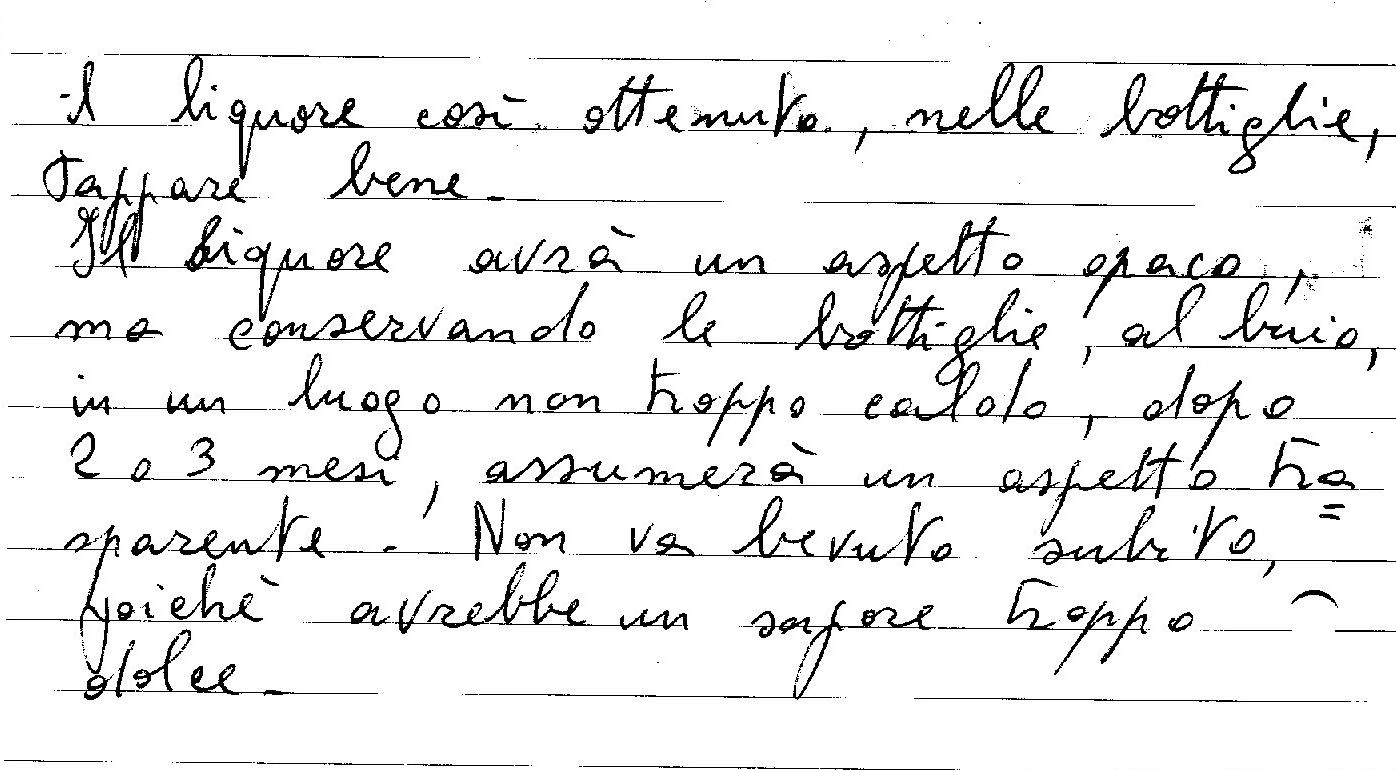 il liquore così ottenuto, nelle bottiglie,
tappare bene.
Il liquore avrà un aspetto opaco,
ma conservando le bottiglie, al buio,
in un luogo non troppo caldo, dopo
2 o 3 mesi, assumerà un aspetto tra=
sparente. Non va bevuto subito,
poichè avrebbe un sapore troppo
dolce.